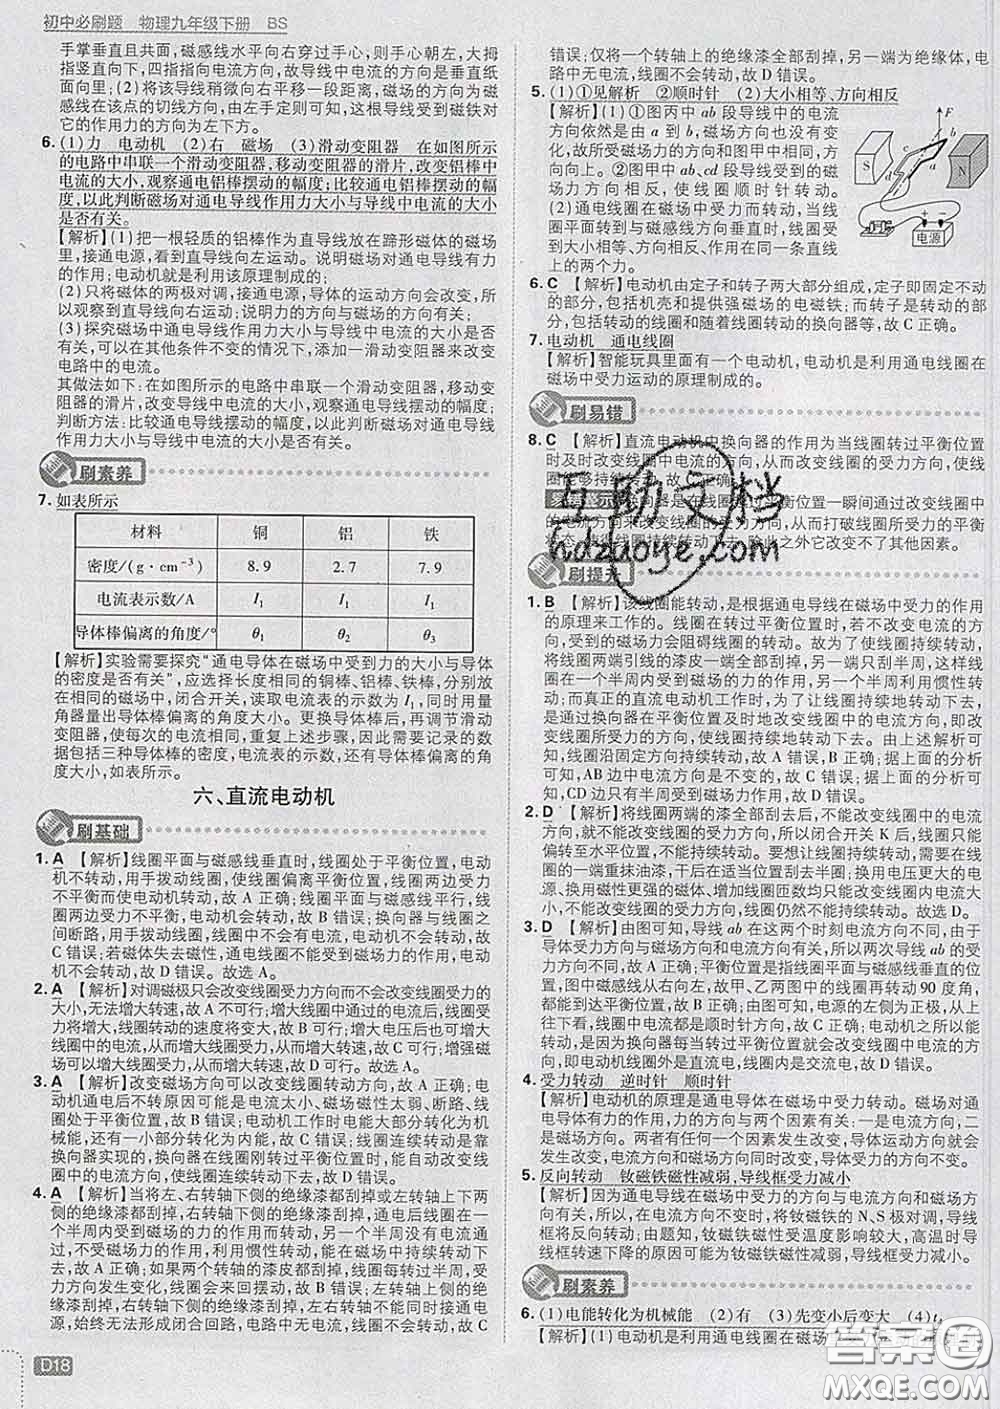 初中必刷题　物理九年级下册　BS
手掌垂直且共面，磁感线水平向右穿过手心，手心朝左，大拇
指竖直向下，四指指向电流方向，故导线中电流的方向是垂直纸
面向里；(2)将该导线稍微向右平移一段距离，磁场的方向为磁
感线在该点的切线方向，由左手定则可知，该导线受到磁铁对
它的作用力的方向为左下方。
6. (1)力　电动机　(2)右　磁场　(3)滑动变阻器　在如图所示
的电路中串联一个滑动变阻器，移动变阻器的滑片，改变铝棒中
电流的大小，观察通电铝棒摆动的幅度；比较通电铝棒摆动的幅
度，以此判断磁场对通电导线作用力大小与导线中电流的大小
是否有关。
【解析】(1)把一根轻质的铝棒作为直导线放在蹄形磁体的磁场
里，接通电源，看到直导线向左运动。说明磁场对通电导线有力
的作用；电动机就是利用该原理制成的；
(2)只将磁体的两极对调，接通电源，导体的运动方向会改变，所
以观察到直导线向右运动；说明力的方向与磁场的方向有关；
(3)探究磁场中通电导线作用力大小与导线中电流的大小是否
有关，可以在其他条件不变的情况下，添加一滑动变阻器来改变
电路中的电流。
其做法如下：在如图所示的电路中串联一个滑动变阻器，移动变
阻器的滑片，改变导线中电流的大小，观察导线摆动的幅度；
判断方法：比较通电导线摆动的幅度，以此判断磁场对通电导线
作用力大小与导线中电流的大小是否有关。
刷素养
7. 如表所示
材料　铜　铝　铁
密度/(g·cm⁻³)　8.9　2.7　7.9
电流表示数/A　I₁　I₁　I₁
导体棒偏离的角度/°　θ₁　θ₂　θ₃
【解析】实验需要探究“通电导体在磁场中受到力的大小与导体
的密度是否有关”，应选择长度相同的铜棒、铝棒、铁棒，分别放
在相同的磁场中，闭合开关，读取电流表的示数为 I₁，同时用量
角器量出导体棒偏离的角度大小。更换导体棒后，再调节滑动
变阻器，使每次的电流相同，重复上述步骤，因此需要记录的数
据包括三种导体棒的密度，电流表的示数，还有导体棒偏离的角
度大小，如表所示。
六、直流电动机
刷基础
1. A　【解析】线圈平面与磁感线垂直时，线圈处于平衡位置，电动
机不转动，用手拨动线圈，使线圈偏离平衡位置，线圈两边受力
不平衡而使电动机转动，故 A 正确；线圈与磁感线平行，线
圈两边受力不平衡，电动机会转动，故 B 错误；换向器与线圈之
间断路，用手拨动线圈，线圈中不会有电流，电动机不会转动，故
C 错误；若磁体失去磁性，通电线圈不能受到磁场力的作用，所
以电动机不会转动，故 D 错误。故选 A。
2. A　【解析】对调磁极只会改变线圈受力方向而不会改变受力的
大小，无法增大转速，故 A 不可行；增大线圈中通过的电流，可
使力增大，线圈转动的速度将变大，故 B 可行；增大电压后也可
增大电流，从而增大线圈受力，从而增大转速，故 C 可行；增强磁场
可以增大线圈受力，从而增大转速，故 D 可行。
3. A　【解析】改变磁场方向可以改变线圈转动方向，故 A 正确；电
动机通电后不转原因可能是电流太小、磁场磁性太弱、断路、线
圈刚好处于平衡位置，故 B 错误；电动机工作时电能大部分转化为机
械能，还有一小部分转化为内能，故 C 错误；线圈连续转动是靠
换向器实现的，换向器能在线圈刚转过平衡位置时，能自动改变
线圈中的电流方向，使线圈连续转动下去，故 D 错误。
4. A　【解析】当将左、右转轴下侧的绝缘漆都刮掉或左转轴上下两
侧的绝缘漆都刮掉，右转轴下侧的绝缘漆刮掉时，这样，线圈在
一个半周内受到磁场的力的作用而转动，在另一个半周内，虽然
不受磁场力的作用，利用惯性，能够在磁场中持续转动，故 A 正
确、B 错误；若将两个转轴的漆皮都刮掉，线圈每转过半周，受力
方向发生变化，线圈会来回摆动，不能持续转动；左转轴上侧的绝
缘漆刮掉，右转轴下侧的绝缘漆刮掉，这样左右不能同时接通电源，
始终无法形成闭合回路，电路中无电流，线圈不会转动，故 C
D18
错误；仅将一个转轴上的绝缘漆全部刮掉，另一端为绝缘体，电
路中无电流，线圈不会转动，故 D 错误。
5. (1)①见解析　②顺时针　(2)大小相等、方向相反
【解析】(1)①图丙中 ab 段导线中的电流
方向依然是由 a 到 b，磁场方向也没有变
化，故受磁场力的方向和图甲中相同，方
向向上。②图甲中 ab、cd 段导线受到的磁
场力方向相反，使线圈顺时针转动。
(2)通电线圈在磁场中受力而转动，当线
圈平面转到与磁场方向垂直时，线圈受力
大小相等、方向相反、作用在同一条直线
上的两个力。
F
c
b
S
d
a
N
+
−
电源
6. C　【解析】电动机由定子和转子两大部分组成，定子即固定不动
的部分，包括机壳和提供强磁场的电磁铁；而转子是转动的部
分，包括转动的线圈和随着线圈转动的换向器等，故 C 正确。
7. 电动机　通电线圈
【解析】智能玩具里面有一个电动机，电动机是利用通电线圈在
磁场中受力运动的原理制成的。
刷易错
8. C　【解析】直流电动机中换向器的作用为当线圈转过平衡位置
时及时改变线圈中电流的方向，从而改变线圈的受力方向，使线
圈能够持续转动，故 C 正确。
易错警示 换向器是在线圈转过平衡位置一瞬间通过改变线圈中
的电流方向来改变线圈的受力方向，从而打破线圈所受力的平衡
状态，使线圈持续转动下去，除此之外它改变不了其他因素。
互助文档
hdzuoye.com
刷提升
1. B　【解析】该线圈能转动，是根据通电导线在磁场中受力的作用
的原理来工作的。线圈在转过平衡位置时，若不改变电流的方
向，受到的磁场力会阻碍线圈的转动。故为了使线圈持续转动，
将线圈两端引线的漆皮一端全部刮掉，另一端只刮半周，这样线圈
在一个半周内受到磁场力的作用，在另一个半周内利用惯性转
动；而真正的直流电动机工作时，为了让线圈持续地转动下去，
是通过换向器在平衡位置及时地改变线圈中的电流方向，即改
变线圈所受力的方向，使线圈持续地转动下去。由上述解析可
知，线圈沿固定方向持续转动，故 A 错误，B 正确；据上面的分析可
知，AB 边中电流方向是不变的，故 C 错误；据上面的分析可
知，CD 边只有半周中有电流通过，故 D 错误。
2. D　【解析】将线圈两端的漆全部刮掉，不能改变线圈中的电流方
向，就不能改变线圈的受力方向，所以闭合开关 K 后，线圈只能
偏转至水平位置，不能持续转动。要想让线圈持续转动，应在线圈
的一端重抹油漆，干后在适当位置刮去半圈；换用电压更大的电
源、换用磁性更强的磁体、增加线圈匝数均只能改变线圈内电流大小，
不能改变线圈的受力方向，线圈仍然不能持续转动。故选 D。
3. D　【解析】由图可知，导线 ab 在这两个时刻电流方向不同，由于
导体受力方向与磁场方向和电流方向有关，所以两次导线 ab 的受
力方向不同，故 A 正确；平衡位置是指线圈平面与磁感线垂直的位置，
图中磁感线从右向左，故甲、乙两图中的线圈再转动 90 度角，
都能到达平衡位置，故 B 正确；由图可知，电源的左侧为正极，从上
往下看，线圈中电流都是顺时针方向，故 C 正确；电动机之所以能
转动，是因为换向器每当转过平衡位置时就改变线圈中的电流方
向，即电动机线圈外是直流电，线圈内是交流电，故 D 错误。
4. 受力转动　逆时针　顺时针
【解析】电动机的原理是通电导体在磁场中受力转动。磁场对通
电导体有力的作用，力的方向与两个因素有关：一是电流方向，
二是磁场方向。两者有任何一个因素发生改变，导体运动方向就
发生改变，两个因素同时改变，导体受力的方向不变。
5. 反向转动　钕磁铁磁性减弱，导线框受力减小
【解析】因为通电导线在磁场中受力的方向与电流方向和磁场方
向有关，所以，在电流方向不变时，将钕磁铁的 N、S 极对调，导线
框转动方向改变；由题知，钕磁铁磁性受温度影响较大，当时导
线框转速下降的原因可能为钕磁铁磁性减弱，导线框受力减小。
刷素养
6. (1)电能转化为机械能　(2)有　(3)先变小后变大　(4)t
【解析】(1)电动机是利用通电线圈在磁场
答案圈
MXQE.COM